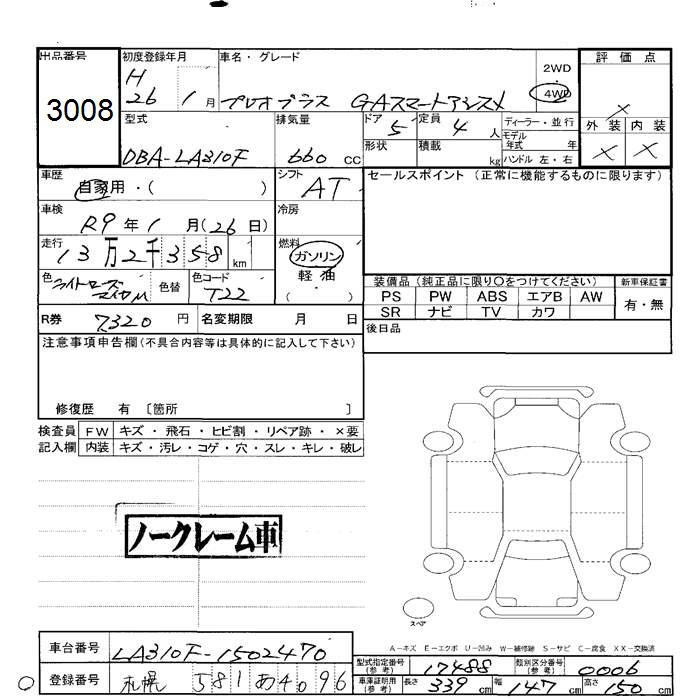 出品番号
3008
初度登録年月
H
26 1月
車名・グレード
プレオプラス GAスマートアシスト
2WD
4WD
評価点
×
外装 内装
× ×
型式
DBA-LA310F
排気量
660 cc
ドア 5
定員 4 人
ディーラー・並行
モデル年式 年
形状
積載 kg
ハンドル 左・右
車歴
自家用・( )
シフト
AT
セールスポイント (正常に機能するものに限ります)
車検
R9年1月(26日)
冷房
走行
13万2千358km
燃料
ガソリン
軽油
( )
色
ライトローズマイカM
色替
色コード
T22
装備品 (純正品に限り〇をつけてください)
新車保証書
PS PW ABS エアB AW
SR ナビ TV カワ
有・無
R券 7,320 円
名変期限 月 日
後日品
注意事項申告欄(不具合内容等は具体的に記入して下さい)
修復歴 有 〔箇所 〕
検査員 FW キズ・飛石・ヒビ割・リペア跡・×要
記入欄 内装 キズ・汚レ・コゲ・穴・スレ・キレ・破レ
ノークレーム車
スペア
A-キズ E-エクボ U-凹み W-補修跡 S-サビ C-腐食 XX-交換済
車台番号 LA310F-1502470
登録番号 札幌 581 あ 4096
型式指定番号(参考) 17488
類別区分番号(参考) 0006
車庫証明用(参考) 長さ 339 cm 幅 147 cm 高さ 150 cm